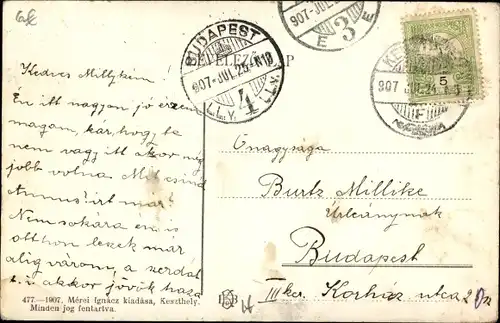 LEVELEZŐ-LAP
BUDAPEST
907 JUL. 25. N 10
4
907 JUL.
3
E E
907 JUL. 24.
5
Kedves Millykém!
Én itt nagyon jó érzem
magam, kár, hogy te
nem vagy itt akkor még
jobb volna. Mit csinál
Annus? írt már?
Nem sokára én is
otthon leszek már
alig várom, a szerdát
akkor jövök haza
Őnagysága
Burtz Millike
Úrleánynak
Budapest
III ker. Korház utca 2
477.—1907. Mérei Ignácz kiadása, Keszthely.
Minden jog fentartva.